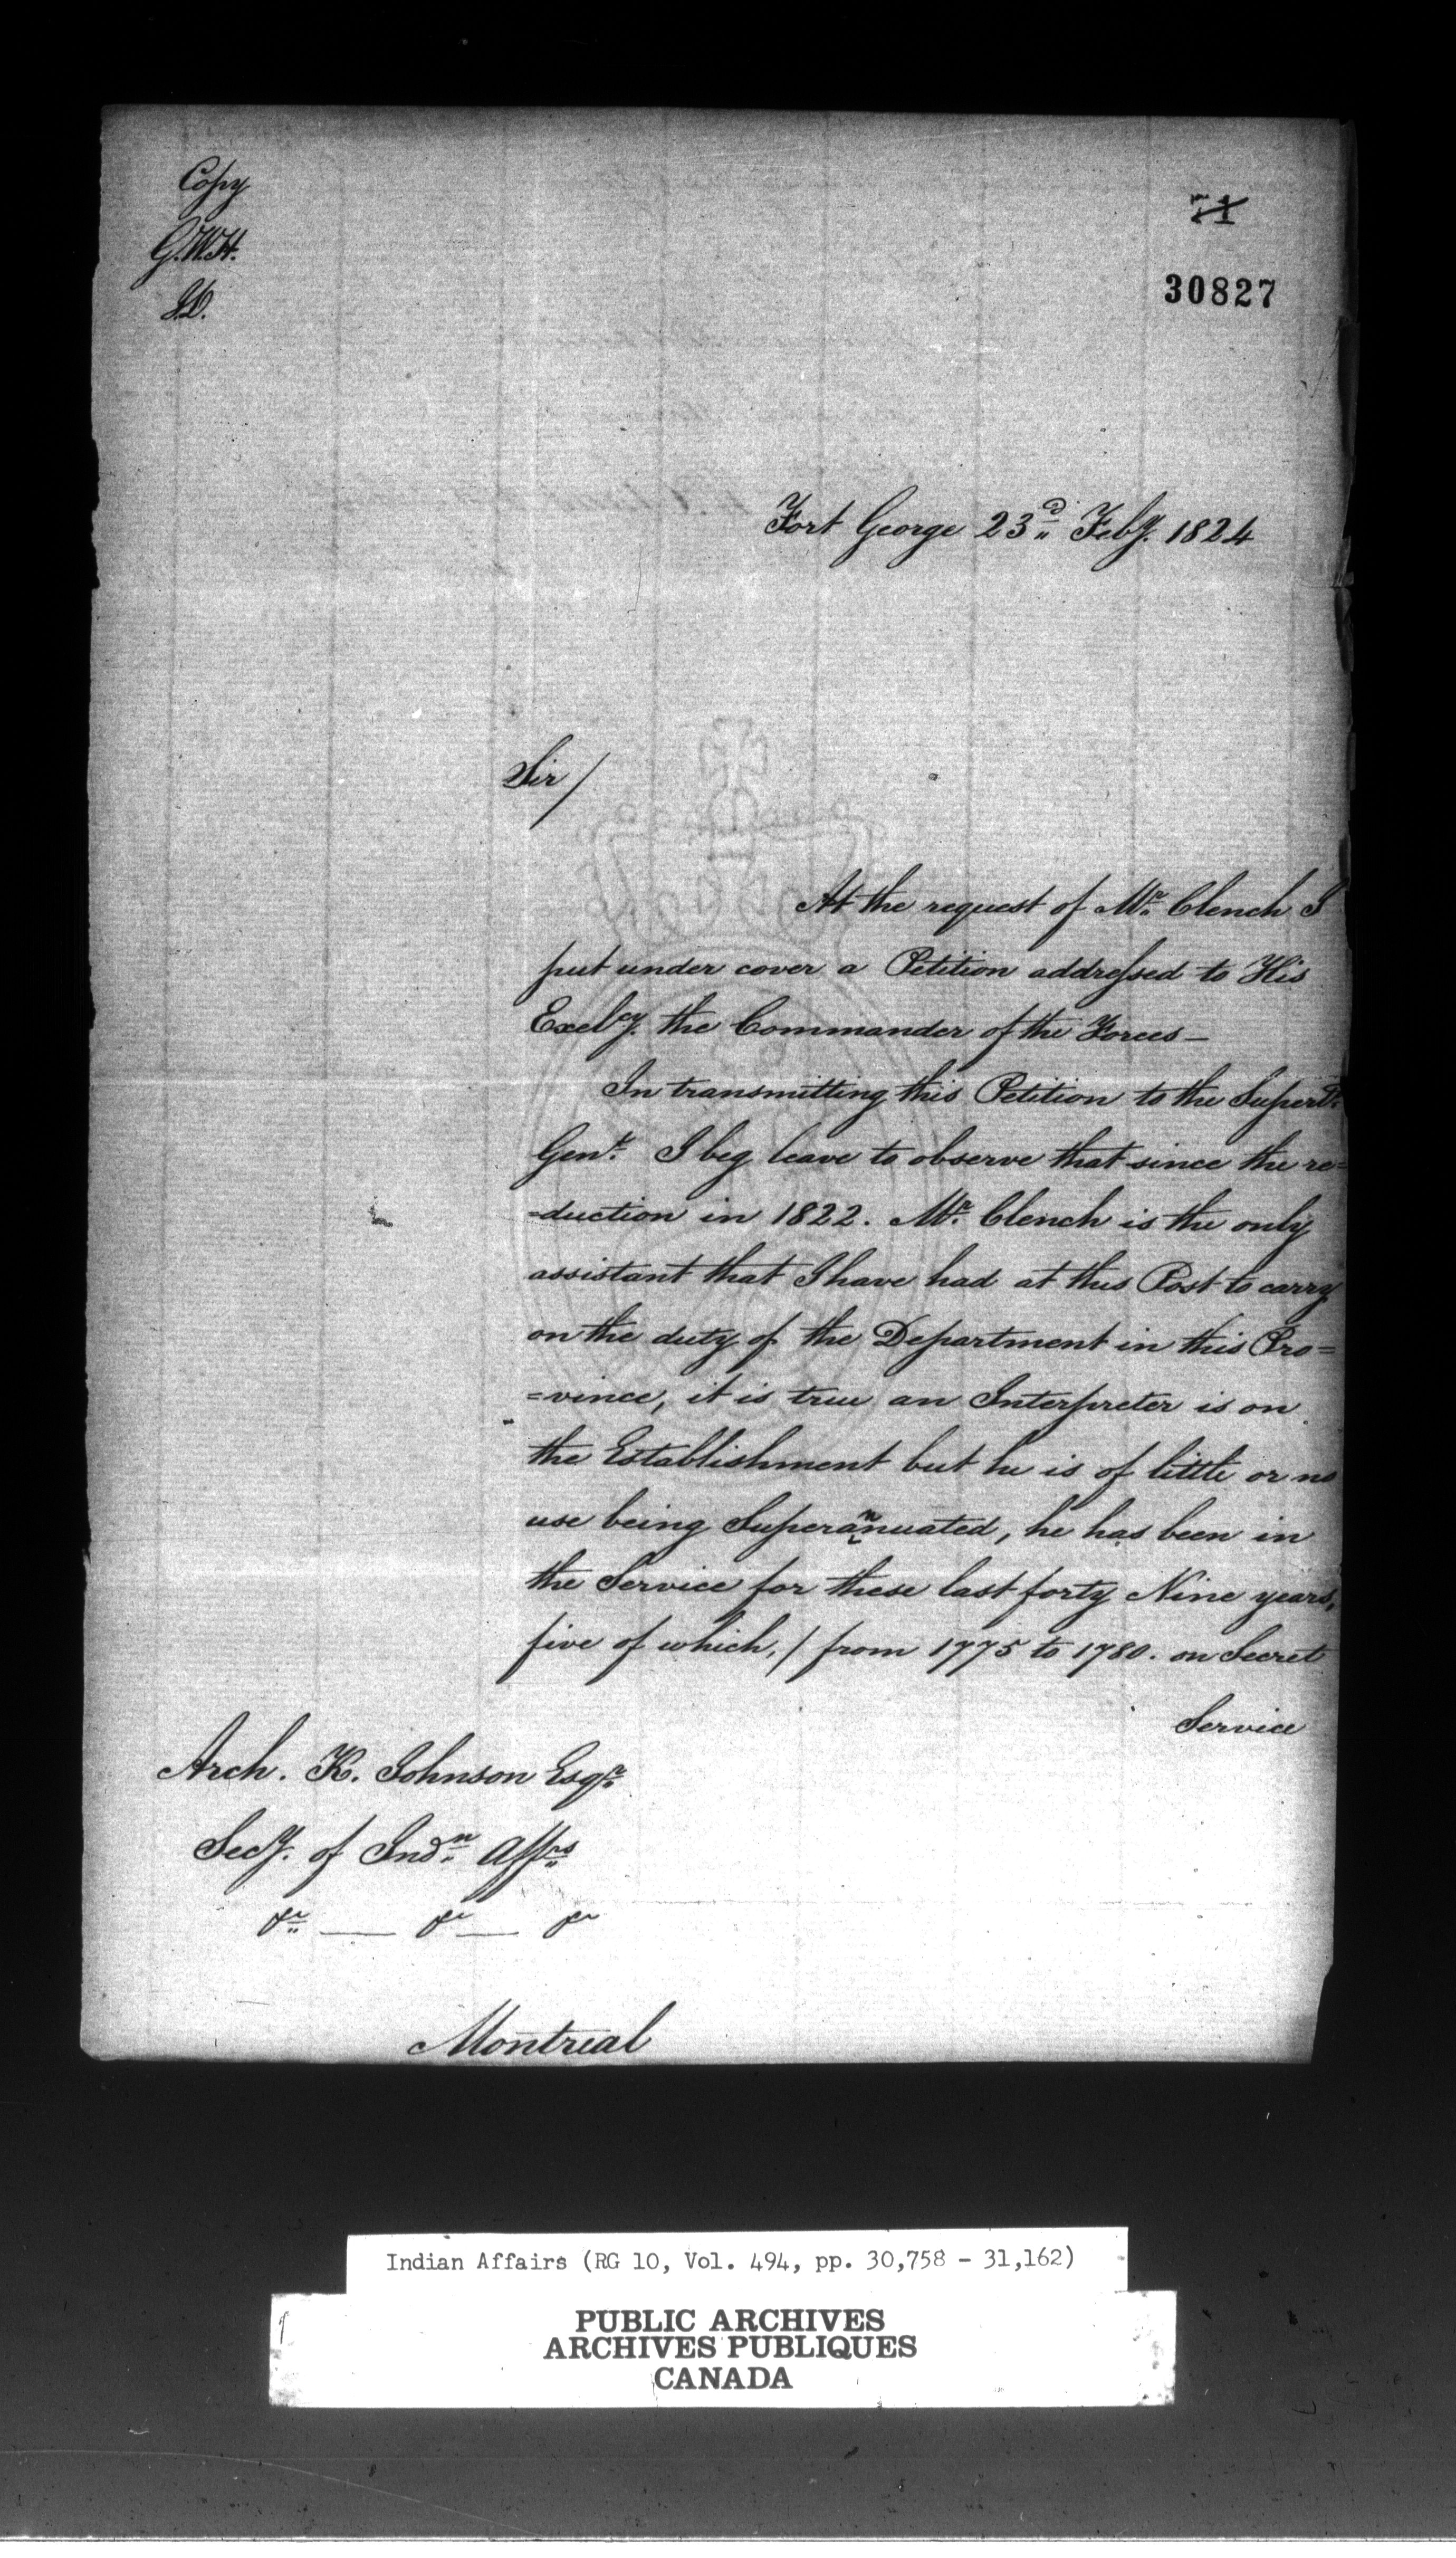 Copy
G.W.H.
71
30827
Fort George 23d Feby. 1824
Sir /
At the request of Mr. Clench I
put under cover a Petition addressed to His
Excelcy. the Commander of the Forces —
In transmitting this Petition to the Superdt.
Genl. I beg leave to observe that since the re=
=duction in 1822. Mr. Clench is the only
assistant that I have had at this Post to carry
on the duty of the Department in this Pro=
=vince, it is true an Interpreter is on
the Establishment but he is of little or no
use being Superannuated, he has been in
the Service for these last forty Nine years,
five of which, / from 1775 to 1780. on Secret
Service
Arch. K. Johnson Esqr.
Secy. of Indn. Affrs
&c — &c — &c
Montreal
Indian Affairs (RG 10, Vol. 494, pp. 30,758 - 31,162)
PUBLIC ARCHIVES
ARCHIVES PUBLIQUES
CANADA